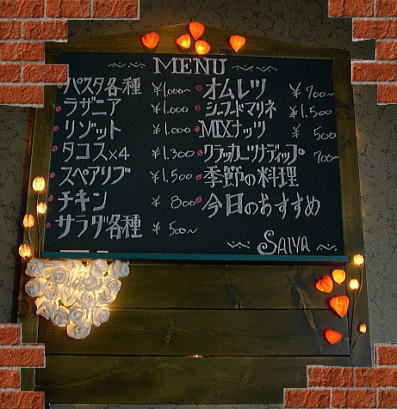 MENU
パスタ各種 ¥1,000~
ラザニア ¥1,000
リゾット ¥1,000
タコス×4 ¥1,300
スペアリブ ¥1,500
チキン ¥ 800
サラダ各種 ¥ 500~
オムレツ ¥700~
シーフードマリネ ¥1,500
MIXナッツ ¥ 500
クラッカーツナディップ 700~
季節の料理
今日のおすすめ
SAIYA